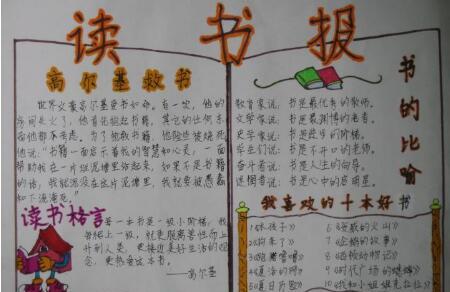 读书报
高尔基救书
世界文豪高尔基爱书如命。有一次，他的
房间失火了，他首先抱起书籍，其它的什么东
西他都不考虑。为了抢救书籍，他险些被烧死。
他说："书籍一面启示着我的智慧和心灵，一面
帮助我在一片烂泥塘里站起来，如果不是书籍
的话，我就沉没在这片泥塘里，我就要被愚蠢
和下流淹死。
读书格言
每一本书是一级小阶梯，我
每爬上一级，就更脱离兽性而上
升到人类，更接近美好生活的观
念，更热爱这本书。
——高尔基
书的比喻
教育家说：书是最优秀的教师。
史学家说：书是进步的阶梯。
学生们说：书是不开口的老师。
奋斗者说：书是人生的向导。
迷惘者说：书是心中的启明星。
我喜欢的十本好书
6《愤怒的火山》
2《狗来了》
7《企鹅的故事》
8《拯救动物记》
9《时代广场的蟋蟀》
5《夏日历险》
10《我和小姐姐克拉拉》